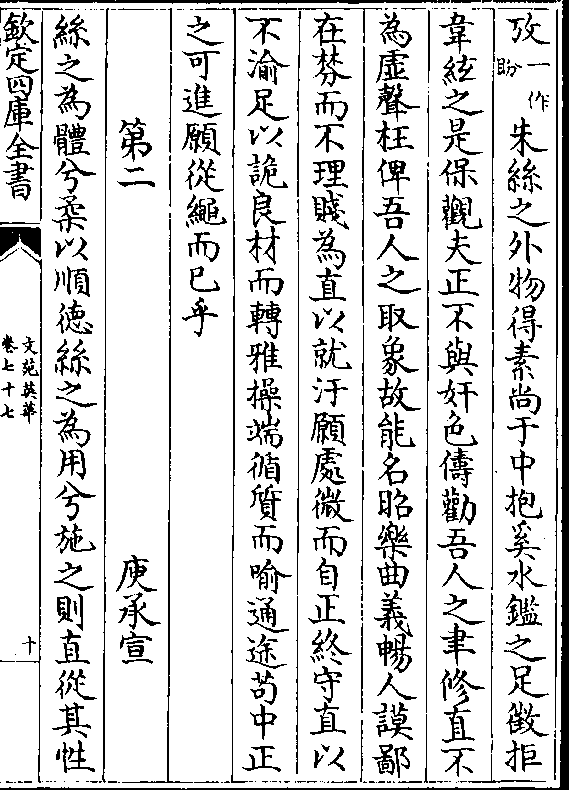 攷一作盼朱絲之外物得素尚于中抱奚水鑑之足徵拒
韋絃之是保觀夫正不與奸色儔勸吾人之聿修直不
為虛聲枉俾吾人之取象故能名昭樂曲義暢人謨鄙
在棼而不理賤為直以就汙願處微而自正終守直以
不渝足以詭良材而轉雅操端循質而喻通途苟中正
之可進願從繩而已乎
第二 庾承宣
絲之為體兮柔以順德絲之為用兮施之則直從其性
欽定四庫全書
文苑英華
卷七十七
十